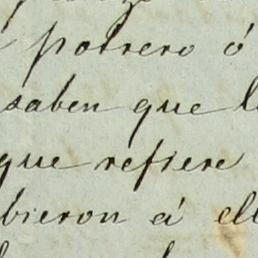 potrero ó
saben que l
que refiere
bieron á ell